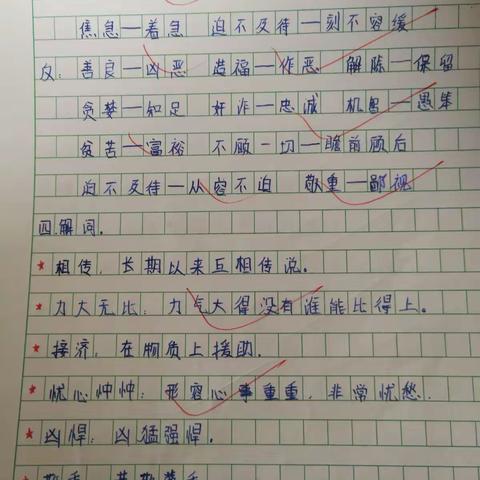 焦急—着急 迫不及待—刻不容缓
反:善良—凶恶 造福—作恶 解除—保留
贪婪—知足 奸诈—忠诚 机智—愚笨
贫苦—富裕 不顾一切—瞻前顾后
迫不及待—从容不迫 敬重—鄙视
四.解词.
★相传,长期以来互相传说。
★力大无比:力气大得没有谁能比得上。
★接济,在物质上援助.
★忧心忡忡:形容心事重重,非常忧愁.
★凶悍:凶猛强悍.